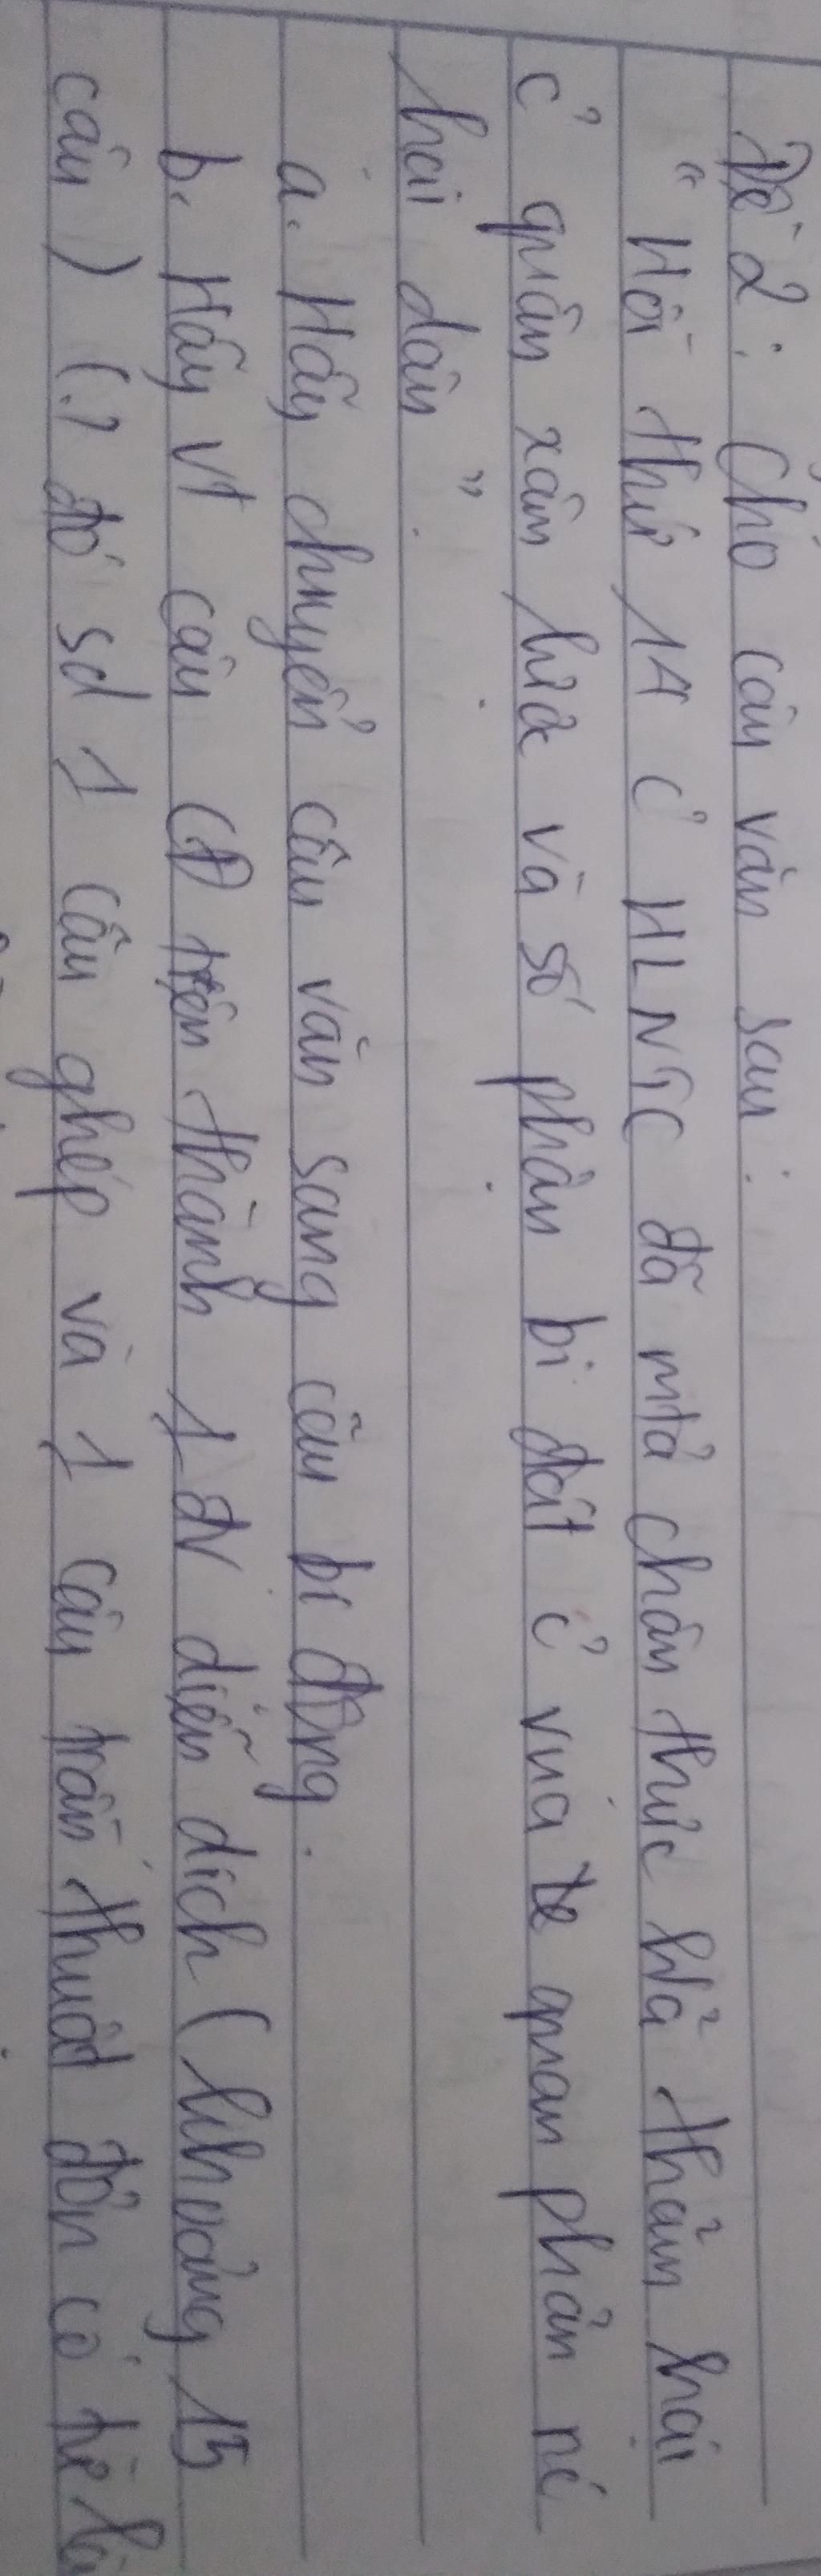 Đề 2: Cho câu văn sau:
"Hồi thứ 14 c' HLNTC đã mtả chân thực h/ả thảm hại
c' quân xâm lược và số phận bi đát c' vua quan phản nc'
hại dân".
a. Hãy chuyển câu văn sang câu bị động.
b. Hãy vt câu CĐ trên thành 1 đv diễn dịch (khoảng 15
câu) (.) đó sd 1 câu ghép và 1 câu trần thuật đơn có